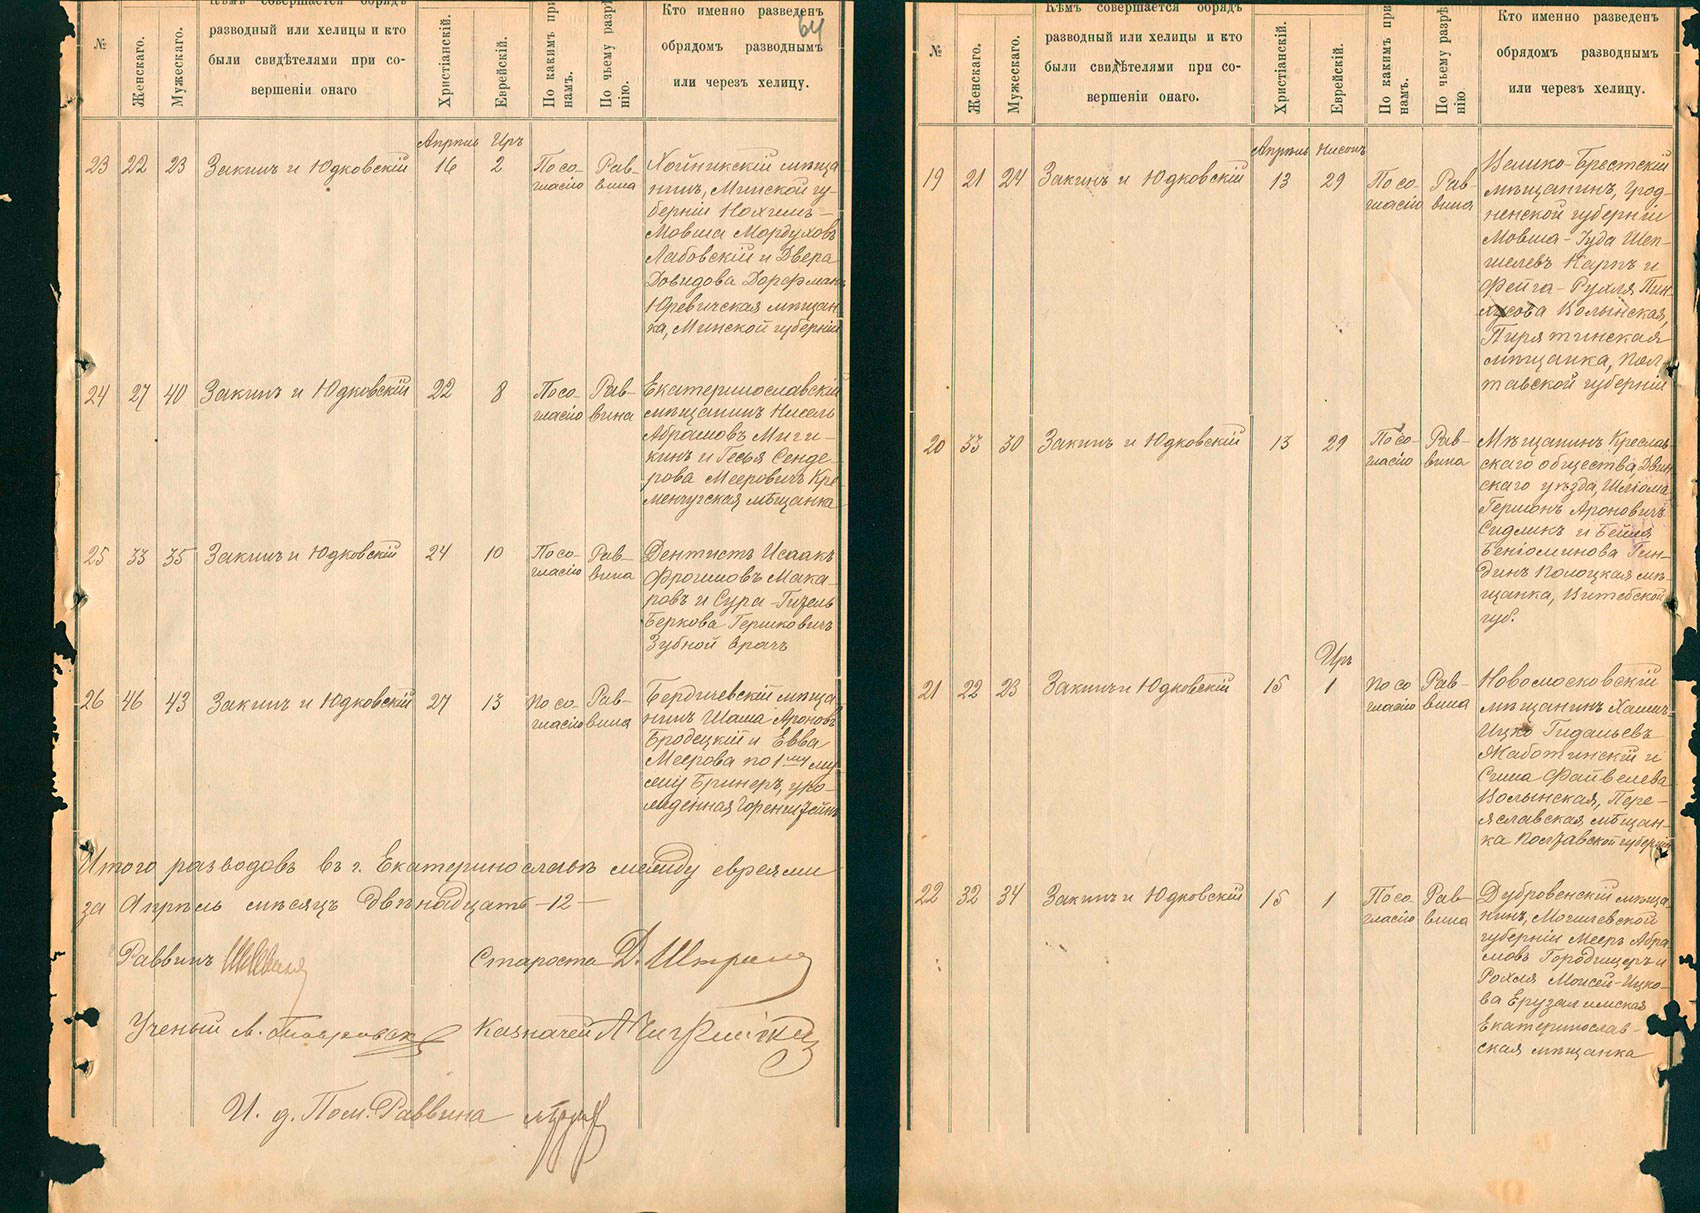 Кѣмъ совершается обрядъ
разводный или хелицы и кто
были свидѣтелями при со-
вершеніи онаго
№
Женскаго.
Мужескаго.
Христіанскій.
Еврейскій.
По какимъ при
намъ.
По чьему разрѣ
нію.
Кто именно разведенъ
обрядомъ разводнымъ
или черезъ хелицу.
64
Апрѣль Iіръ
23 22 23 Закинъ и Юдковскій 16 2 По со-
гласію Рав-
вина
Хойникскій мѣща
нинъ, Минской гу-
берніи Нохимъ-
Мовша Мордуховъ
Лабовскій и Двера
Довидова Дорфманъ
Юревичская мѣщан
ка, Минской губерніи
24 27 40 Закинъ и Юдковскій 22 8 По со-
гласію Рав-
вина
Екатеринославскій
мѣщанинъ Нисель
Абрамовъ Миги-
кинъ и Гесья Сенде-
рова Мееровичъ Кре
менчугская мѣщанка
25 33 35 Закинъ и Юдковскій 24 10 По со-
гласію Рав-
вина
Дентистъ Исаакъ
Фроимовъ Мака-
ровъ и Сура-Гизель
Беркова Гершковичъ
Зубной врачъ
26 46 43 Закинъ и Юдковскій 27 13 По со-
гласію Рав-
вина
Бердичевскій мѣща
нинъ Шама Ароновъ
Бродецкій и Евва
Меерова по 1му му
жу Бринеръ, уро-
жденная
Итого разводовъ въ г. Екатеринославѣ между евреями
за Апрѣль мѣсяцъ двѣнадцать -12-
Раввинъ Староста Д. Штрина
Ученый Казначей
И. д. Пом. Раввина
Кѣмъ совершается обрядъ
разводный или хелицы и кто
были свидѣтелями при со-
вершеніи онаго.
№
Женскаго.
Мужескаго.
Христіанскій.
Еврейскій.
По какимъ при
намъ.
По чьему разрѣ
нію
Кто именно разведенъ
обрядомъ разводнымъ
или черезъ хелицу.
Апрѣль Нисонъ
19 21 24 Закинъ и Юдковскій 13 29 По со-
гласію Рав-
вина
Велико-Брестскій
мѣщанинъ, Грод-
ненской губерніи
Мовша-Іуда Шеп-
шелевъ Карпъ и
Фейга-Рухля Пин-
хусова Волынская,
Пирятинская
мѣщанка, Пол-
тавской губерніи
20 33 30 Закинъ и Юдковскій 13 29 По со-
гласію Рав-
вина
Мѣщанинъ Креслав
скаго общества, Двин
скаго уѣзда, Шліома
Гершонъ Ароновичъ
Сидликъ и Бейля
Беніоминова Гин-
динъ Полоцкая мѣ-
щанка, Витебской
губ.
Iіръ
21 22 23 Закинъ и Юдковскій 15 1 По со
гласію Рав-
вина
Новомосковскій
мѣщанинъ Хаимъ
Ицко Гидальевъ
Жаботинскій и
Сима Файвелева
Волынская, Пере-
яславская мѣщан-
ка Полтавской губерніи
22 32 34 Закинъ и Юдковскій 15 1 По со-
гласію Рав-
вина
Дубровенскій мѣща-
нинъ, Могилевской
губерніи Мееръ Абра
мовъ Городищеръ и
Рохля Моисей-Ицко-
ва Ерузалимская
Екатеринослав-
ская мѣщанка